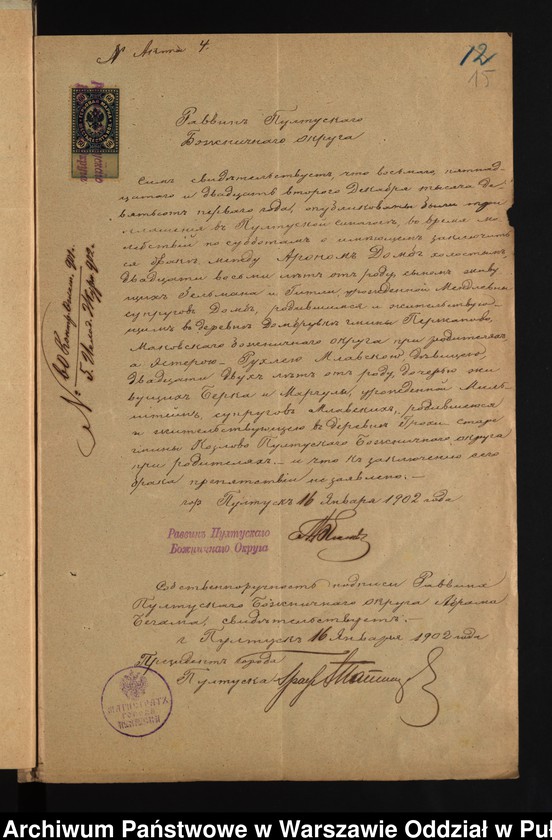 № Акта 4.
12
15
Раввинъ Пултускаго
Божничнаго округа
Симъ свидѣтельствуетъ, что восьмаго, пятнад-
цатаго и двадцать втораго Декабря тысяча де-
вятьсотъ перваго года, опубликованы были
въ Пултуской синагогѣ, во время мо-
лебствій по субботамъ о имѣющемъ заключить-
ся бракѣ, между Арономъ Домбъ холостымъ,
двадцати восьми лѣтъ отъ роду, сыномъ живу-
щихъ Зельмана и Гитли, урожденной
супруговъ Домбъ, родившимся и жительствую-
щимъ въ деревнѣ гмины
Маковскаго божничнаго округа при родителяхъ,
а Эстерою-Рухлею Млавской, дѣвицей,
двадцати двухъ лѣтъ отъ роду, дочерью жи-
вущихъ Берка и Маргулы, урожденной Миль-
штейнъ, супруговъ Млавскихъ, родившеюся
и жительствующею въ деревнѣ старе
гмины Козлово Пултускаго Божничнаго округа
при родителяхъ — и что къ заключенію сего
брака препятствій не заявлено. —
гор. Пултускъ 16 Января 1902 года
Раввинъ Пултускаго
Божничнаго Округа
Собственноручность подписи Раввина
Пултускаго Божничнаго округа Абрама
свидѣтельствуетъ. —
г. Пултускъ 16 Января 1902 года
Президентъ города
Пултуска
МАГИСТРАТЪ
ГОРОДА
Archiwum Państwowe w Warszawie Oddział w Puł